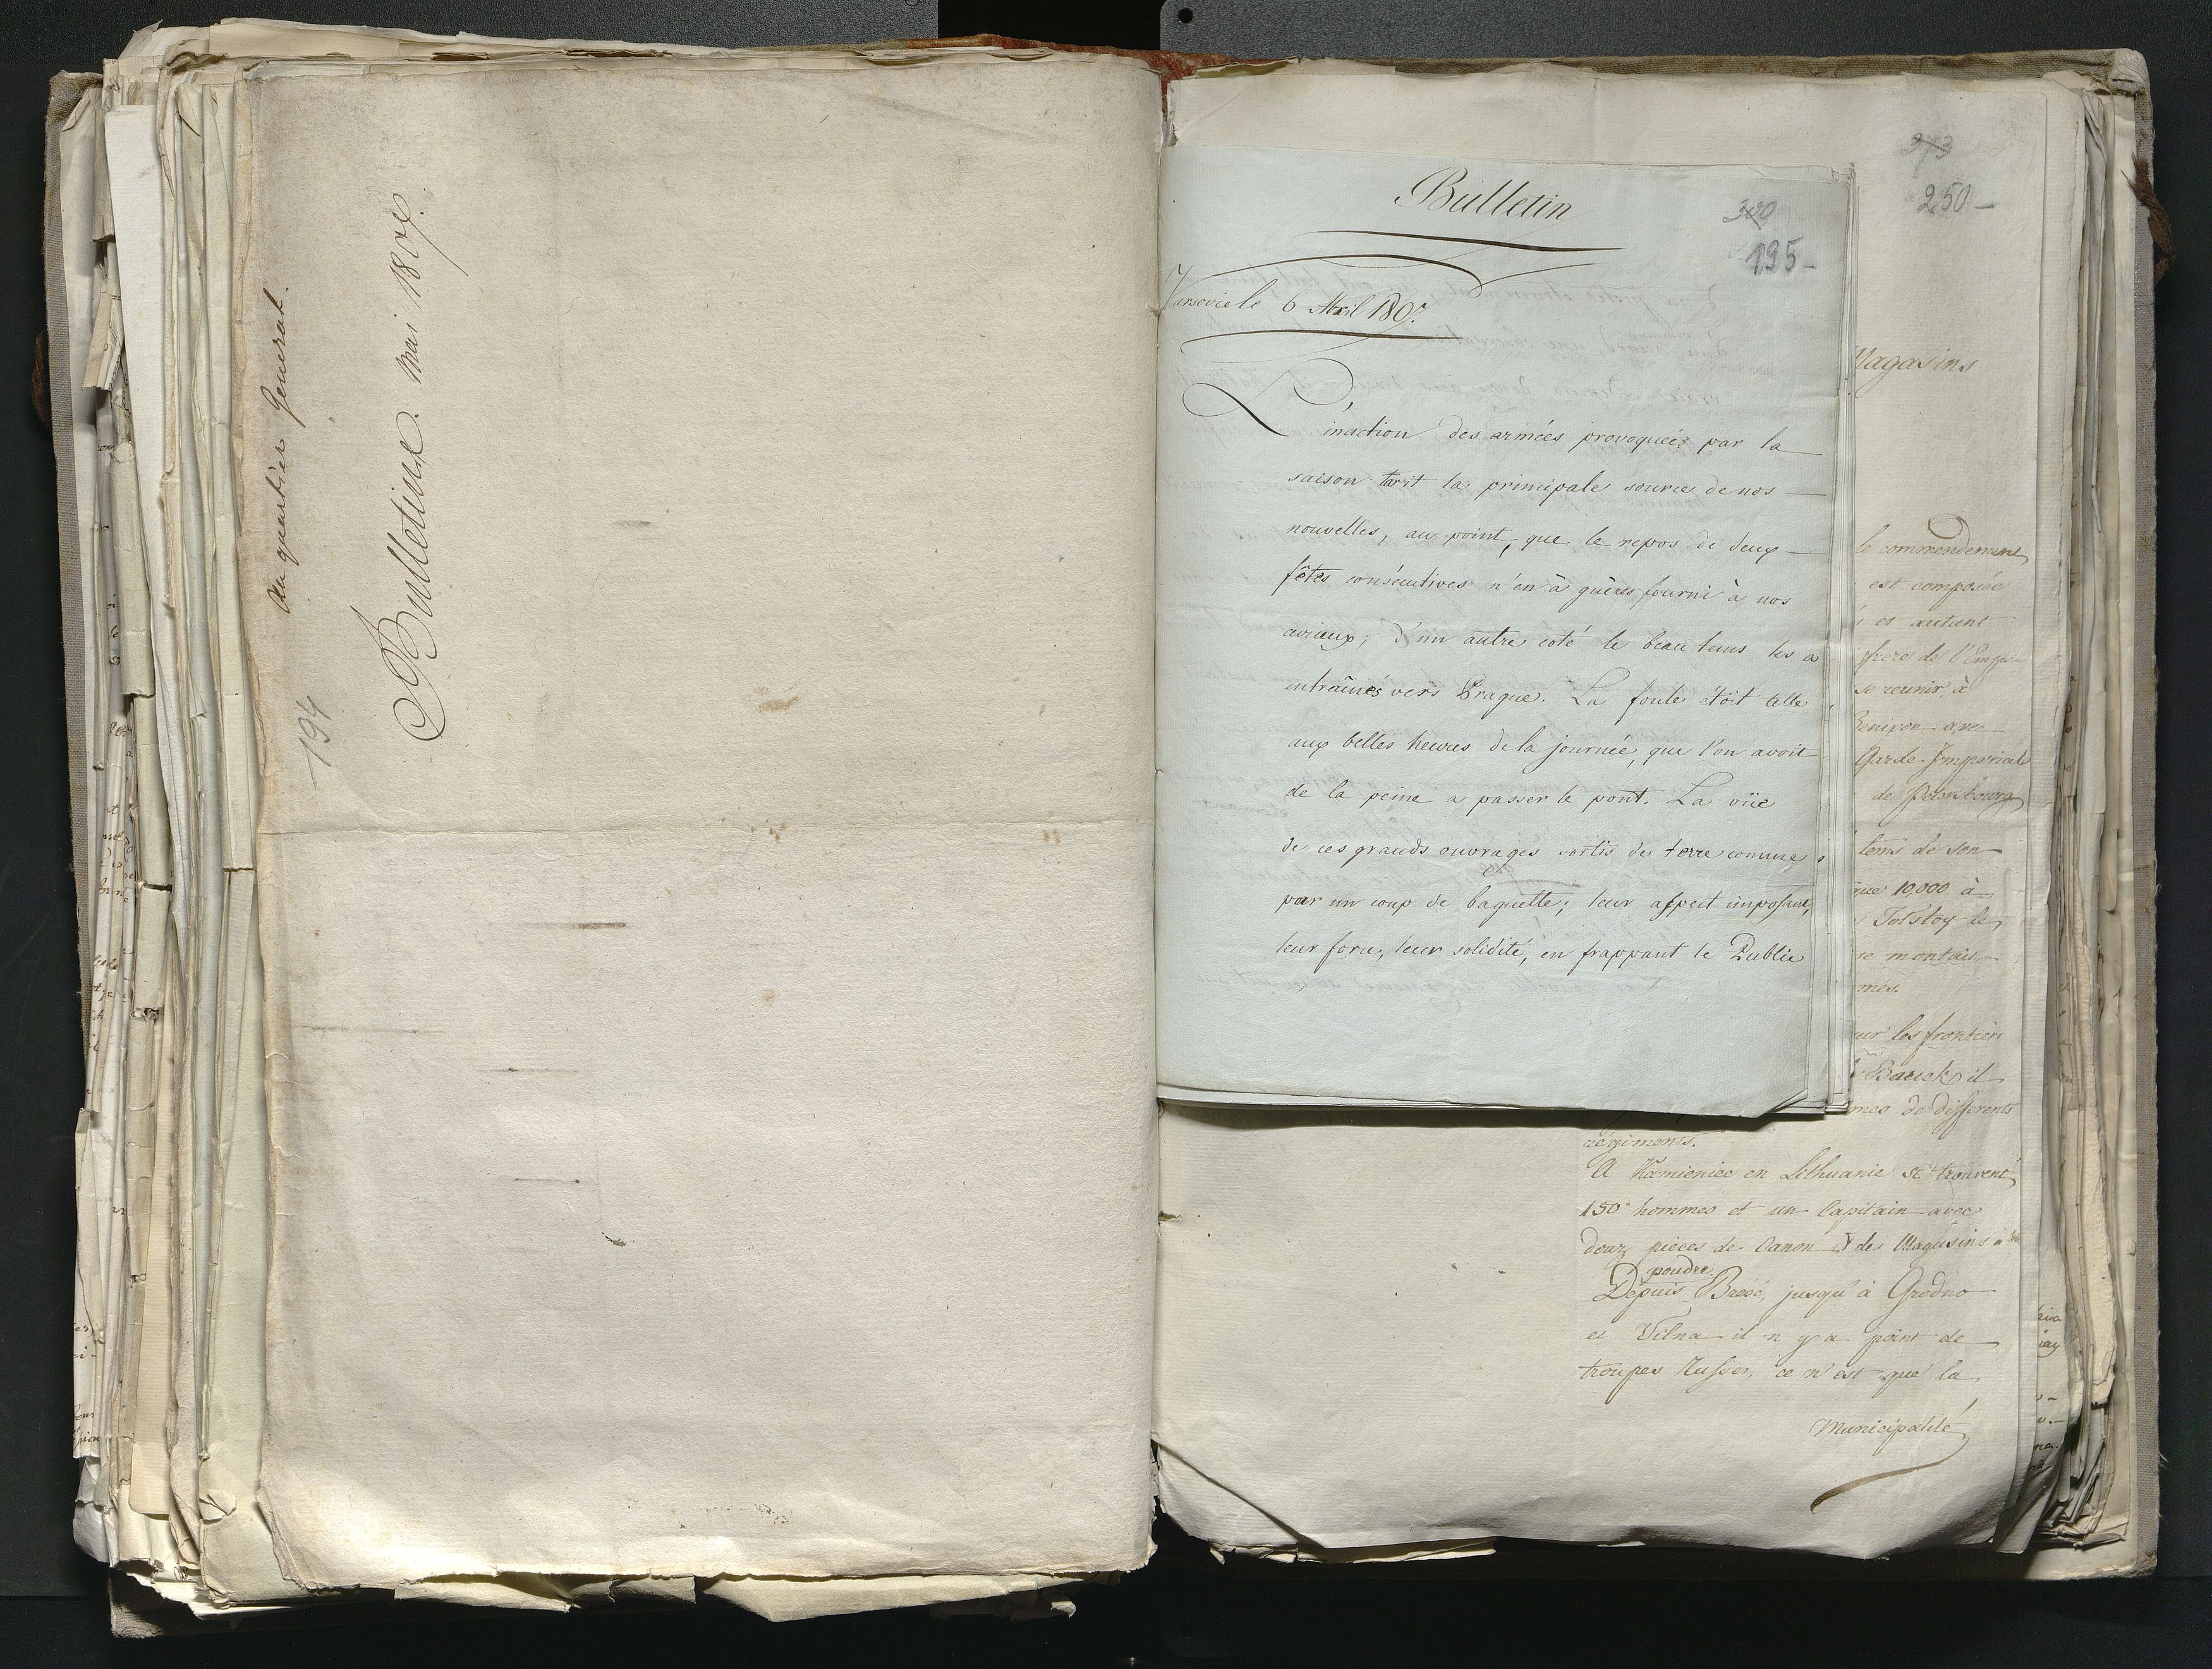 au quartier General.
Bulletins. mai 1807.
194
Bulletin
300
195-
Varsovie le 6 Avril 1807.
L'inaction des armées provoquée par la
saison tarit la principale source de nos
nouvelles, au point, que le repos de deux
fêtes consécutives n'en à guères fourni à nos
curieux; d'un autre coté le beau tems les a
entraînés vers Prague. La foule étoit telle
aux belles heures de la journée, que l'on avoit
de la peine a passer le pont. La vüe
de ces grands ouvrages sortis de terre comme
par un coup de baguette; leur aspect imposant,
leur force, leur solidité, en frappant le Public
273
250-
Magasins
le commendement
est composée
et autant
frere de l'Empe
se reunir à
Garde Imperiale
de Petersbourg
tems de son
que 10,000 à
Tolstoy le
montais
mes.
sur les frontieri
il
mes de differents
régiments.
A Kamieniec en Lithuanie se trouvent
150 hommes et un Capitain avec
douz pieces de Canon & des Magasins à
poudre.
Depuis Bresc, jusqu'à Grodno
et Vilna il n'y a point de
troupes Russes, ce n'est que la
Municipalité